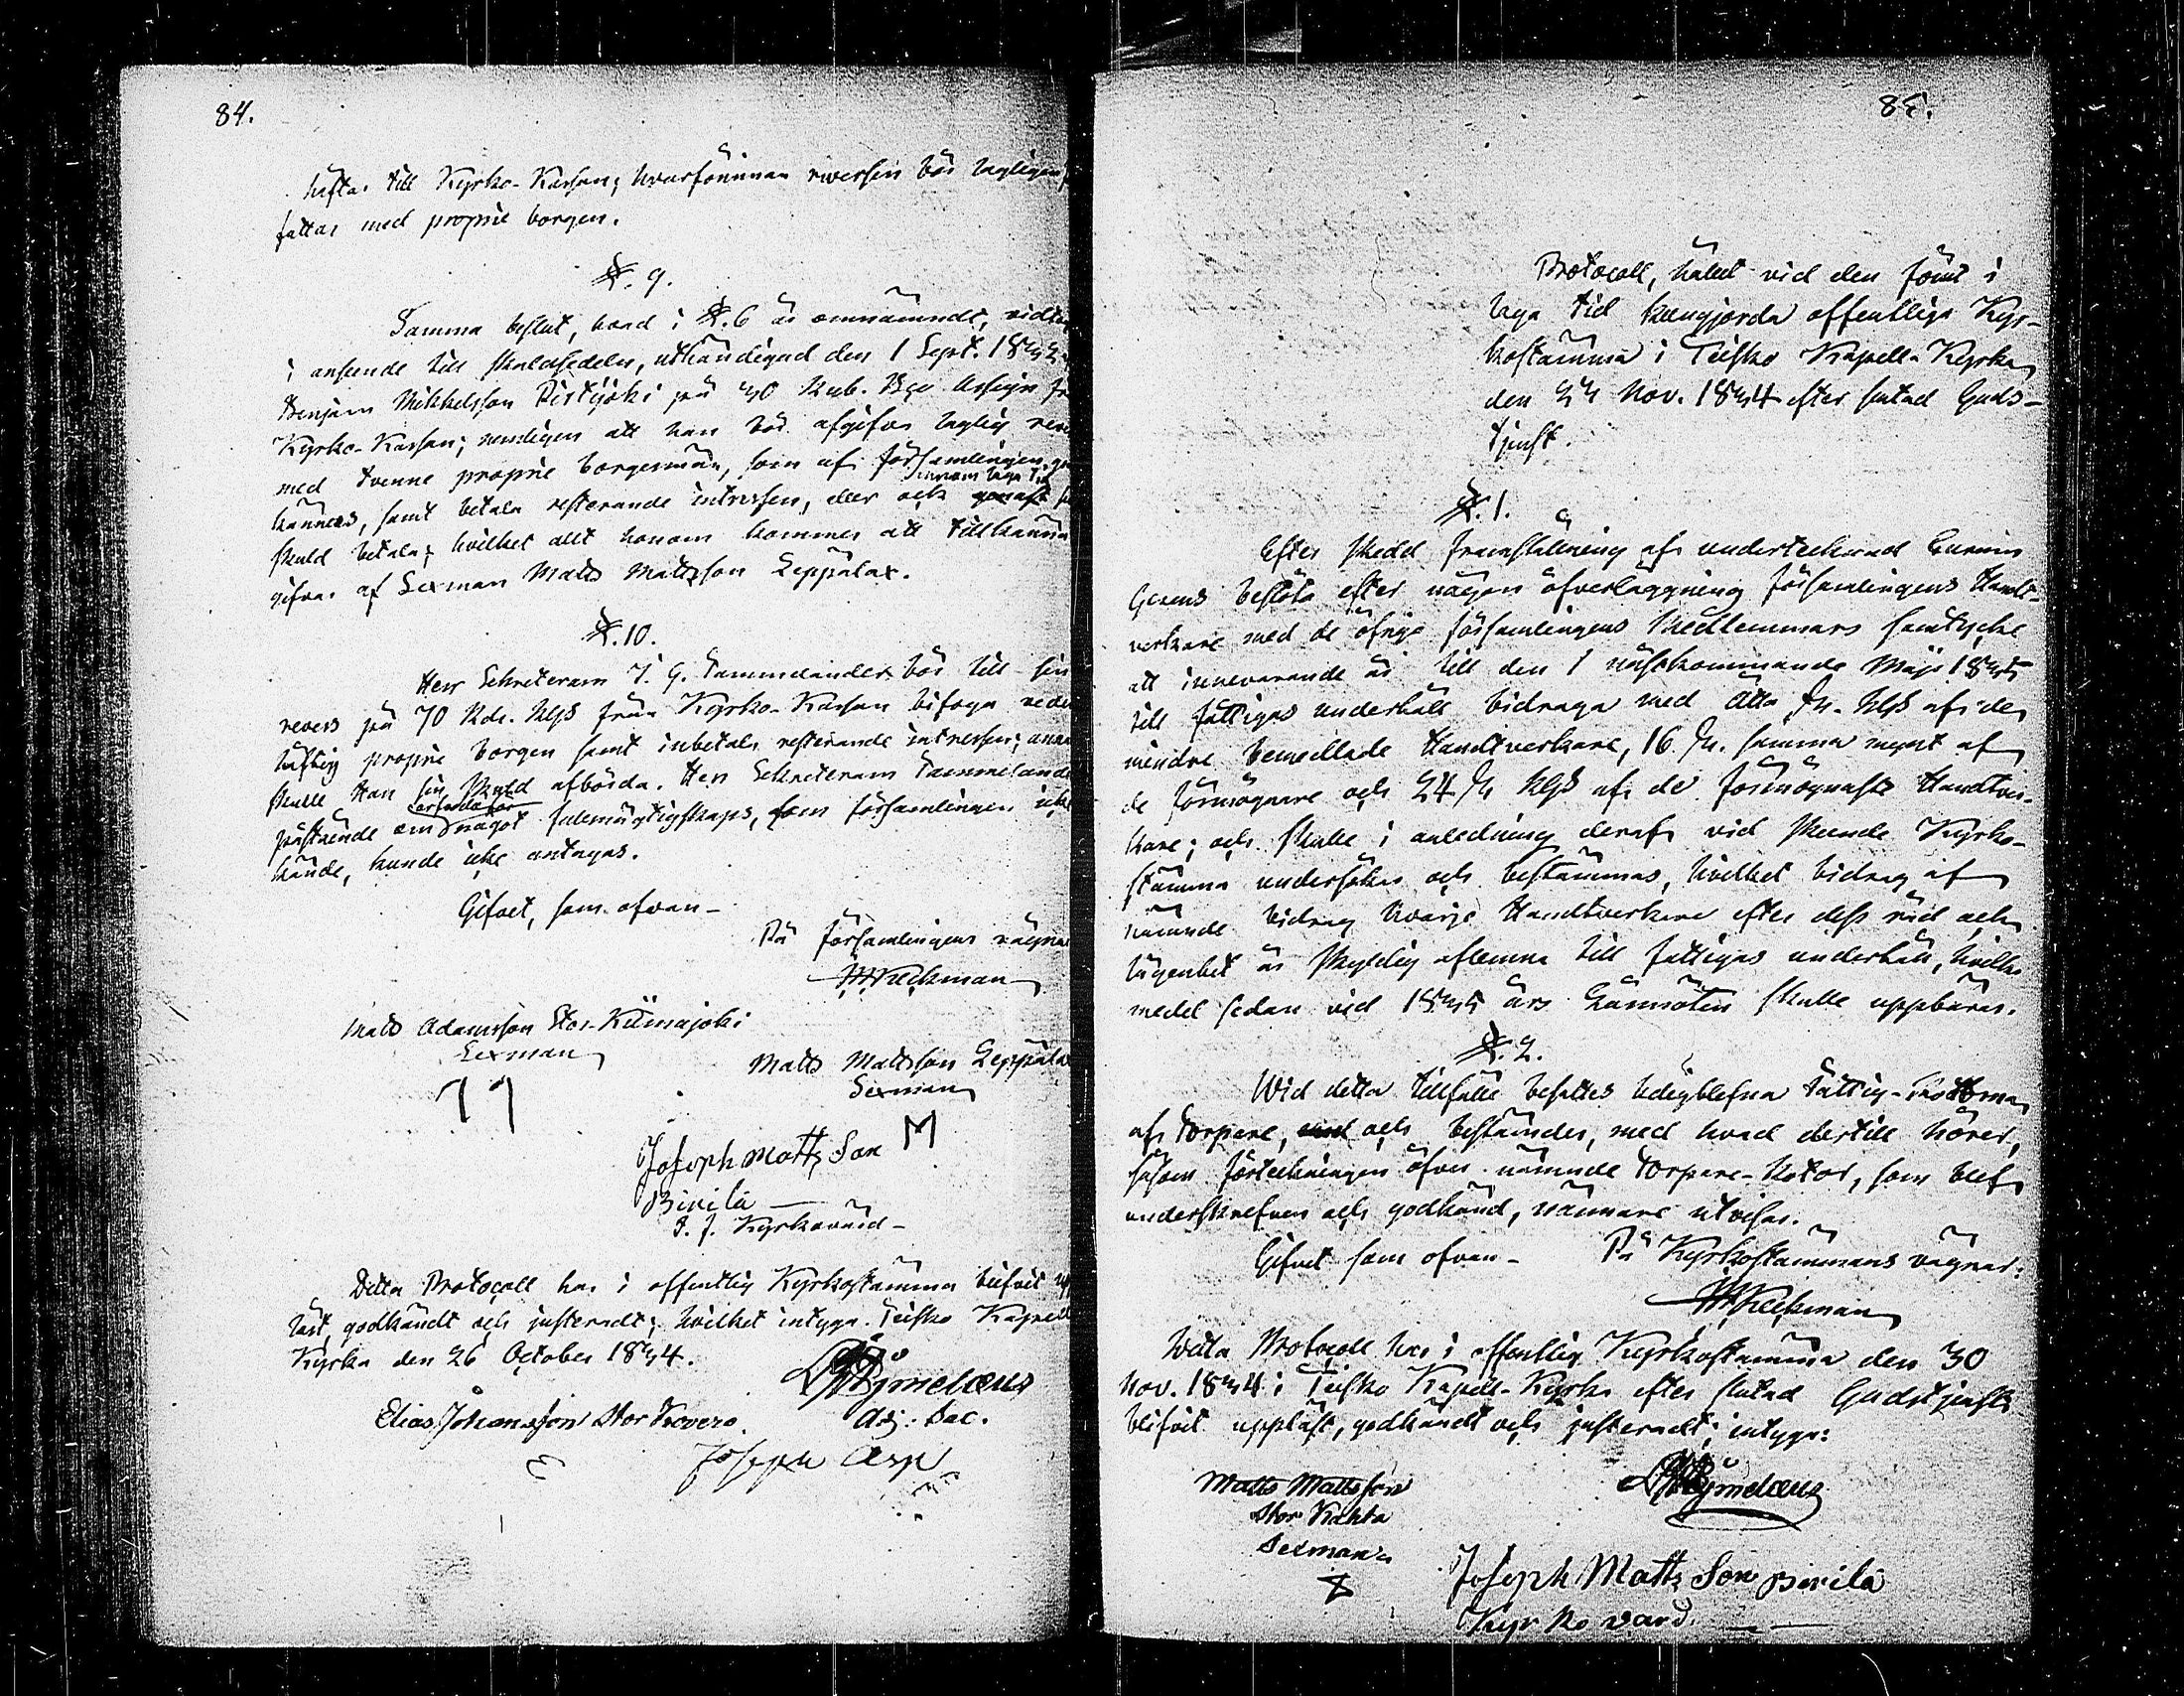 84.
häftas till Kyrko-Kassan; hvarförinnan reversen bör lagligen
fattas med proprie borgen.
§. 9.
Samma beslut, hvad i §. 6 är omnämndt, vidtogs
i anseende till skuldsedeln, uthändigad den 1 Sept. 1832
Benjam Mikkelsson Ristijoki på 30 Rub. Bco Assign. fr
Kyrko-Kassan; nemligen att han bör afgifva laglig revers
med tvenne proprie borgesmän, som af församlingen
innom laga tid
kännas, samt betala resterande intressen, eller och genast
skuld betala; hvilket allt honom kommer att tillkänna
gifvas af Sexman Matts Mattsson Leppälax.
§. 10.
Herr Sekreteraren J. G. Tammelander bör till sin
revers på 70 Rdr. RgS från Kyrko-Kassan bifoga veder
häftig proprie borgen samt inbetala resterande intressen; annars
skulle Han sin skuld afbörda. Herr Sekreteraren Tammelande
påstående om något fulemägtigskaps, som församlingen icke
kände, kunde icke antagas.
Gifvet, som ofvan-
På församlingens vägnar
M. Heckman
Matts Adamsson Stor-Kiimajoki
Sexman
Matts Mattsson Leppäla
Sexman
M
Joseph Matts Son
Birilä
T. f. Kyrkovärd-
Detta Protocoll har i offentlig Kyrkostämma blifvit upp
läst, godkändt och justeradt; hvilket intyga. Teisko Kapell
Kyrka den 26 October 1834.
Adj. Sac.
Elias Johansson Stor Kovero.
E
Joseph Asp
85.
Protocoll, hållet vid den förut i
laga tid kungjorda offentliga Kyr-
kostämma i Teisko Kapell-Kyrka
den 23 Nov. 1834 efter slutad Guds-
tjenst.
§. 1.
Efter skedd framställning af undertecknad Curam
Gerens beslöto efter någon öfverläggning församlingens Handt-
verkare med de öfrige församlingens Medlemmars samtycke
att innevarande år till den 1 nästkommande Maji 1835
till fattigas underhåll bidraga med Åtta sk. RgS af de
mindre bemedlade Handtverkare, 16 sk. samma mynt af
de förmögnare och 24 sk RgS af de förmögnaste Handtver-
kare; och skulle i anledning deraf vid skeende Kyrko-
stämma undersökas och bestämmas, hvilket bidrag af
nämnde bidrag hvarje Handtverkare efter dess råd och
lägenhet är skyldig aflemna till fattigas underhåll, hvilka
medel sedan vid 1835 års Länmöten skulle uppbäras.
§. 2.
Wid detta tillfälle besattes Fattig-Rotorna
af Torpare, med och bestämdes, med hvad dertill hörer,
såsom förteckningen öfver nämnde Torpare-Rotor, som blef
underskrefven och godkänd, närmare utvisar.
Gifvet som ofvan-
På Kyrkostämmans vägnar:
M. Heckman
Detta Protocoll har i offentlig Kyrkostämma den 30
Nov. 1834 i Teisko Kapell-Kyrka efter slutad Gudstjenst
blifvit uppläst, godkändt och justeradt; intyga:
Matts Mattsson
Stor Kahta
Sexman
Joseph Matts Son Birilä
Kyrko vard.